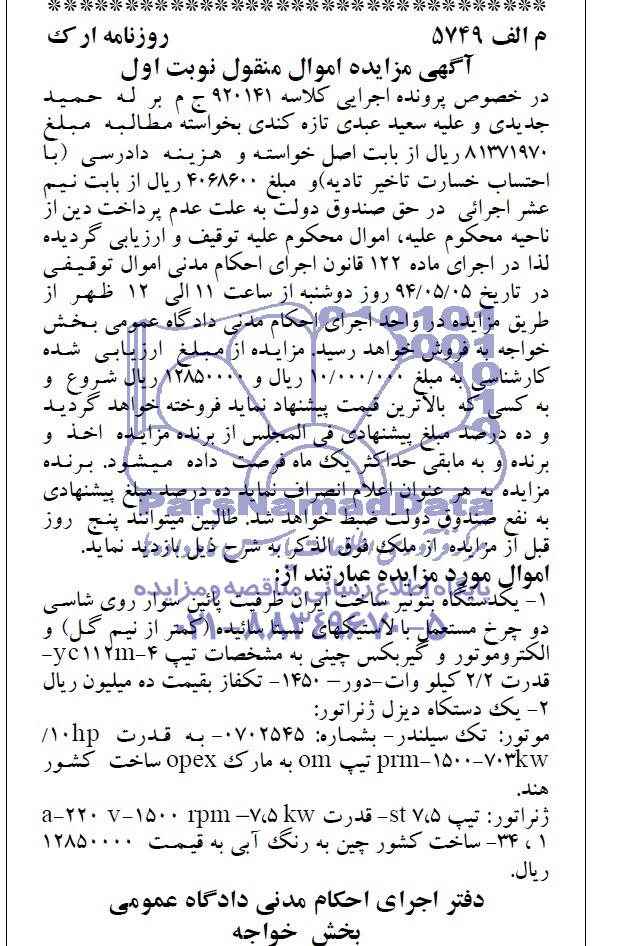 ********************************
م الف ۵۷۴۹ روزنامه ارک
آگهی مزایده اموال منقول نوبت اول
در خصوص پرونده اجرایی کلاسه ۹۲۰۱۴۱ ج م بر له حمید
جدیدی و علیه سعید عبدی تازه کندی بخواسته مطالبه مبلغ
۸۱۳۷۱۹۷۰ ریال از بابت اصل خواسته و هزینه دادرسی (با
احتساب خسارت تاخیر تادیه)و مبلغ ۴۰۶۸۶۰۰ ریال از بابت نیم
عشر اجرائی در حق صندوق دولت به علت عدم پرداخت دین از
ناحیه محکوم علیه، اموال محکوم علیه توقیف و ارزیابی گردیده
لذا در اجرای ماده ۱۲۲ قانون اجرای احکام مدنی اموال توقیفی
در تاریخ ۹۴/۰۵/۰۵ روز دوشنبه از ساعت ۱۱ الی ۱۲ ظهر از
طریق مزایده در واحد اجرای احکام مدنی دادگاه عمومی بخش
خواجه به فروش خواهد رسید. مزایده از مبلغ ارزیابی شده
کارشناسی به مبلغ ۱۰/۰۰۰/۰۰۰ ریال و ۱۲۸۵۰۰۰۰ ریال شروع و
به کسی که بالاترین قیمت پیشنهاد نماید فروخته خواهد گردید
و ده درصد مبلغ پیشنهادی فی المجلس از برنده مزایده اخذ و
برنده و به مابقی حداکثر یک ماه فرصت داده میشود. برنده
مزایده به هر عنوان اعلام انصراف نماید ده درصد مبلغ پیشنهادی
ParsNamadData
به نفع صندوق دولت ضبط خواهد شد. طالبین میتوانند پنج روز
قبل از مزایده از ملک فوق الذکر به شرح ذیل بازدید نماید.
اموال مورد مزایده عبارتند از:
پایگاه اطلاع رسانی مناقصه و مزایده
۱- یکدستگاه بتونیر ساخت ایران ظرفیت پائین سوار روی شاسی
دو چرخ مستعمل با لاستیکهای نسبتا سائیده (کمتر از نیم گل) و
۰۲۱-۸۸۳۴۹۶۷۰-۵
الکتروموتور و گیربکس چینی به مشخصات تیپ yc۱۱۲m-۴-
قدرت ۲/۲ کیلو وات-دور– ۱۴۵۰- تکفاز بقیمت ده میلیون ریال
۲- یک دستگاه دیزل ژنراتور:
موتور: تک سیلندر- بشماره: ۰۷۰۲۵۴۵- به قدرت ۱۰hp/
prm-۱۵۰۰-۷۰۳kw تیپ om به مارک opex ساخت کشور
هند.
ژنراتور: تیپ st ۷،۵- قدرت a-۲۲۰ v-۱۵۰۰ rpm –۷،۵ kw
۱ ، ۳۴- ساخت کشور چین به رنگ آبی به قیمت ۱۲۸۵۰۰۰۰
ریال.
دفتر اجرای احکام مدنی دادگاه عمومی
بخش خواجه